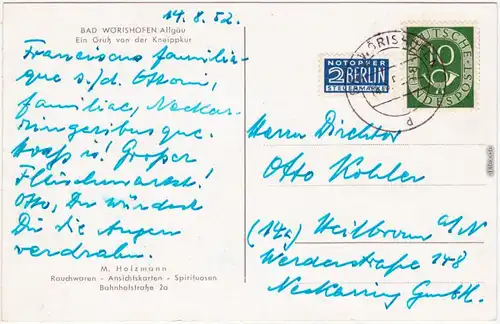 14.8.52.
BAD WÖRISHOFEN Allgäu
Ein Gruß von der Kneippkur
Franciscus familia-
que s./d. Ottoni,
familiae, Neckar-
ringeribusque.
is! Großer
Fleischmarkt!
Otto, Du würdest
Dir die Augen
verdrehn.
M. Holzmann
Rauchwaren - Ansichtskarten - Spirituosen
Bahnhofstraße 2a
NOTOPFER
2 BERLIN
STEUERMARKE
DEUTSCHE
BUNDESPOST
10
d
Herrn Direktor
Otto Kohler
(14a) Heilbronn a/N
Werderstraße 148
Neckarring GmbH.